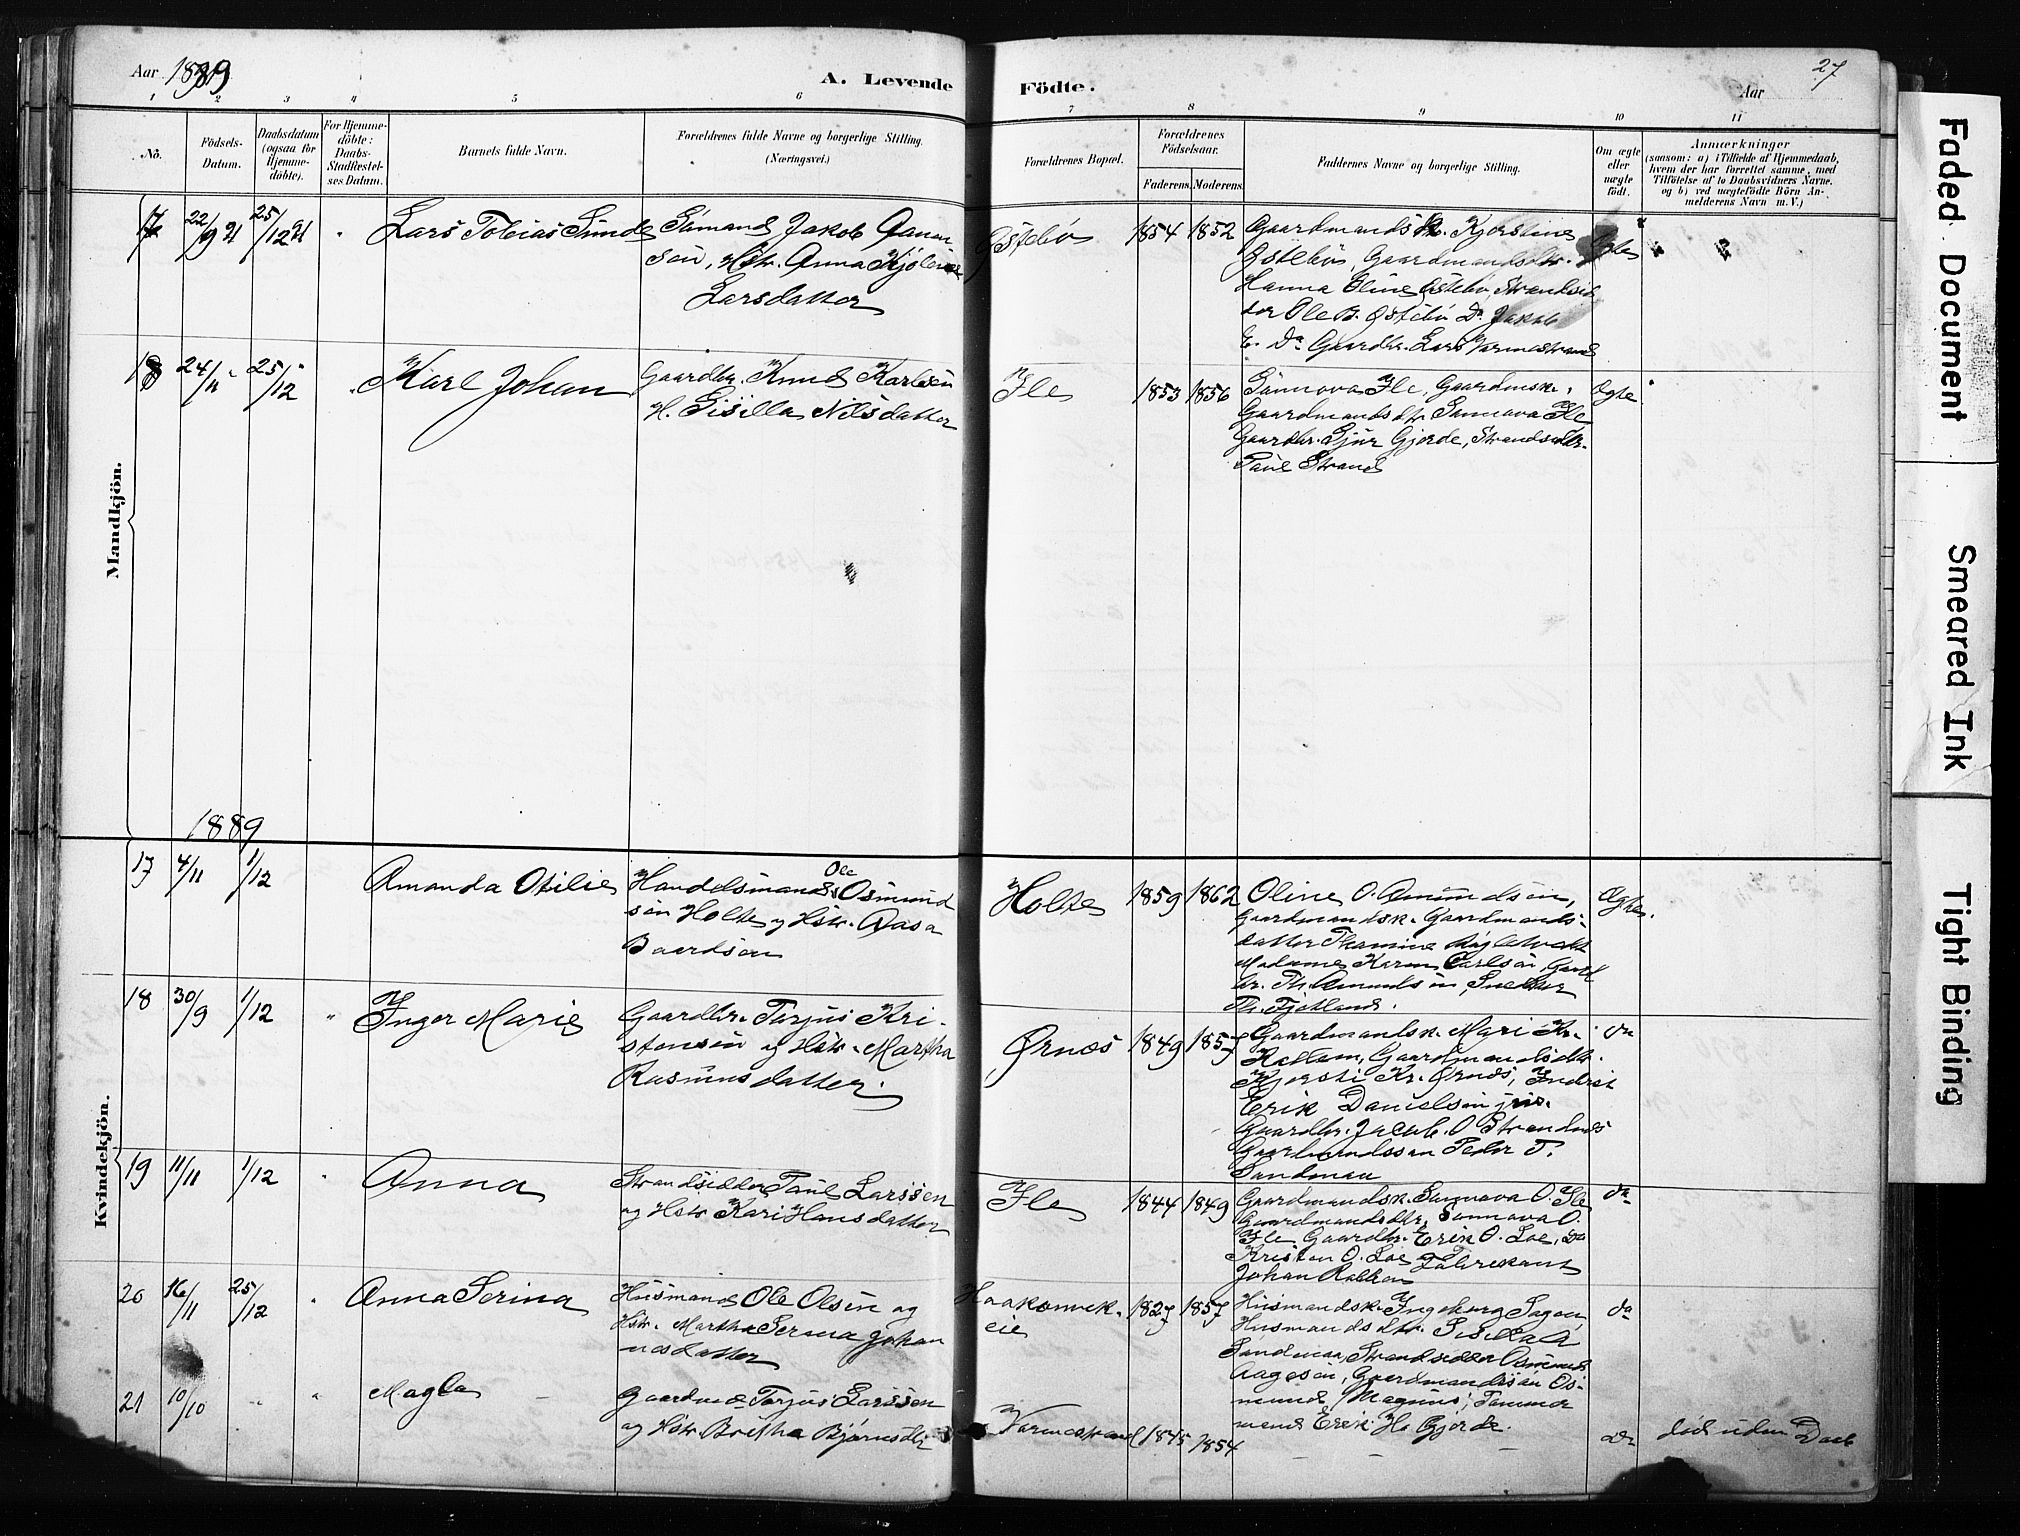 Aar 1889
A. Levende
Födte.
Aar
27
1 2 3 4 5 6 7 8 9 10 11
No.
Födsels-
Datum.
Daabsdatum
(ogsaa for
Hjemme-
döbte).
For Hjemme-
döbte:
Daabs-
Stadfæstel-
ses Datum.
Barnets fulde Navn.
Forældrenes fulde Navne og borgerlige Stilling.
(Næringsvei.)
Forældrenes Bopæl.
Forældrenes
Födselsaar.
Faderens. Moderens.
Faddernes Navne og borgerlige Stilling.
Om ægte
eller
uægte
födt.
Anmærkninger
(saasom: a) i Tilfælde af Hjemmedaab,
hvem der har forrettet samme, med
Tilföielse af to Daabsvidners Navne,
og b) ved uægtefödte Börn An-
melderens Navn m. V.)
Mandkjön.
17 22/9 25/12 Lars Tobias Sunde
Sömand Jakob
sen, Hstr. Anna
Larsdatter
Östebö 1854 1852
Gaardmandsk. Kjerstine
Östebö, Gaardmandsdtr.
Hanna Oline Östebö, Strandsid
der Ole B. Östebö Do Jakob
E. Do Gaardbr. Lars Varmestrand
Ægte
18 24/11 25/12 Karl Johan
Gaardbr. Knud Karlsen
H. Sisilla Nilsdatter
Ile 1853 1856
Sannova Ile, Gaardmsk.
Gaardmandsdtr. Sannova Ile
Gaardbr. Sjur Gjerde, Strandsidder
Paul Strand
Ægte
1889
Kvindekjön.
17 4/11 1/12 Amanda Otilie
Handelsmand Ole Osmund
sen Holte og Hstr. Aasa
Baardsen
Holte 1859 1862
Oline O. Amundsen,
Gaardmandsk. Gaardmands-
datter Thomine
Madame Karen Carlsen, Gaard
br. Th. Amundsen, Snedker
Th. Fjetland.
Ægte.
18 30/9 1/12 " Inger Marie
Gaardbr. Torjus Kri-
stensen og Hstr. Martha
Rasmusdatter.
Ørnes 1849 1857
Gaardmandsk. Mari Kr.
Gaardmandsdtr.
Kjersti Kr. Ørnes,
Erik Danielsen jun.
Gaardbr. Jacob. O Strandnes
Gaardmandssøn Peder T.
Sandmau
do
19 11/11 1/12 " Anna
Strandsidder Paul Larssen
og Hstr. Kari Hansdatter
Ile 1844 1849
Gaardmandsk. Sannava O. Ile
Gaardmandsdtr. Sannava O.
Ile, Gaardbr. Erik O. Loe, Do
Kristen O. Loe Fabrikant
Johan
do
20 16/11 25/12 " Anna Serina
Husmand Ole Olsen og
Hstr. Martha Serina Johan
nesdatter
Haakonvik-
eie
1827 1857
Husmandsk. Ingeborg Sagen,
Husmandsdtr. Sisilla A
Sandmau, Strandsidder Osmund
Aagesen, Gaardmandssøn Os-
mund Magnus, Tømmer
mand Erik H. Gjerde.
do
21 10/10 " " Magla
Gaardmd. Torjus Larssen
og Hstr. Britha Bjørnsdtr
Varmestrand 1845 1854
do
død uden Daab
Faded Document
Smeared Ink
Tight Binding